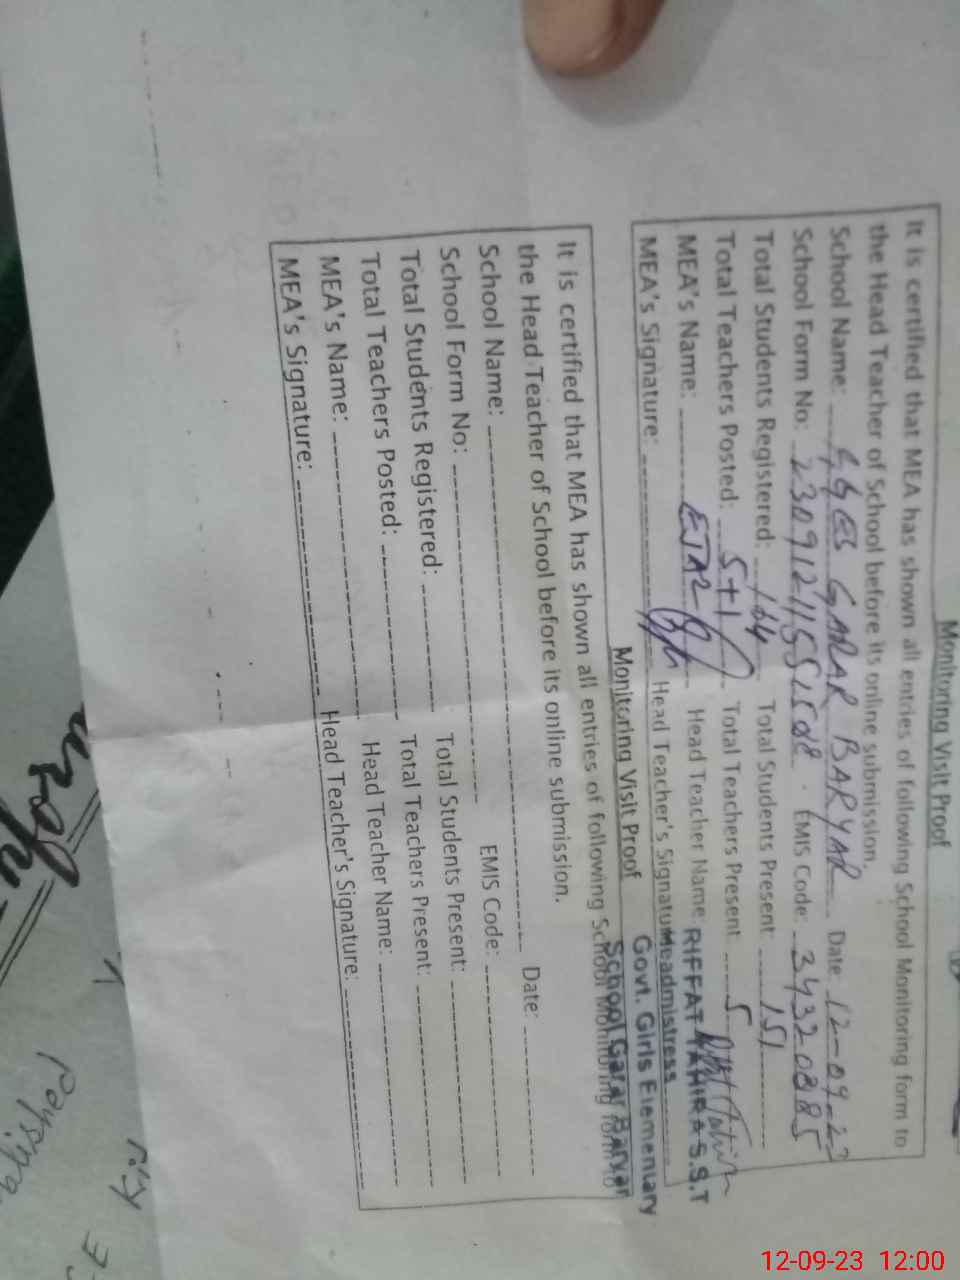 Monitoring Visit Proof
It is certified that MEA has shown all entries of following School Monitoring form to
the Head Teacher of School before its online submission.
School Name: GGES GARAR BARYAR Date: 12-09-23
School Form No: EMIS Code: 34320885
Total Students Registered: 164 Total Students Present 151
Total Teachers Posted: 5+1 Total Teachers Present 5
MEA's Name: EJAZ Head Teacher Name: RIFFAT TAHIRA S.S.T
MEA's Signature: Head Teacher's Signature Headmistress
Govt. Girls Elementary
School Garar Baryar
Monitoring Visit Proof
It is certified that MEA has shown all entries of following School Monitoring form to
the Head Teacher of School before its online submission.
School Name: Date:
School Form No: EMIS Code:
Total Students Registered: Total Students Present:
Total Teachers Posted: Total Teachers Present:
MEA's Name: Head Teacher Name:
MEA's Signature: Head Teacher's Signature:
12-09-23 12:00